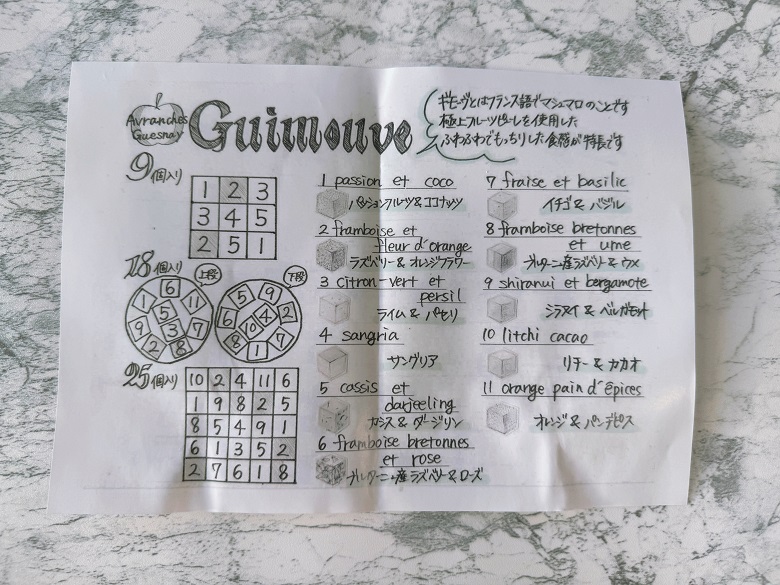 Avranches
Guesnay
Guimouve
ギモーヴとはフランス語でマシュマロのことです
極上フルーツピューレを使用した
ふわふわでもっちりした食感が特長です
9個入り
1 2 3
3 4 5
2 5 1
18個入り
上段
1 6 11
5
9 3 7
2 8
下段
5 9
6 4 2
8 10
1 7
25個入り
10 2 4 11 6
1 9 8 2 5
8 5 4 9 1
6 1 3 5 2
2 7 6 1 8
1 passion et coco
パッションフルーツ&ココナッツ
2 framboise et
fleur d'orange
ラズベリー&オレンジフラワー
3 citron-vert et
persil
ライム&パセリ
4 sangria
サングリア
5 cassis et
darjeeling
カシス&ダージリン
6 framboise bretonnes
et rose
ブルターニュ産ラズベリー&ローズ
7 fraise et basilic
イチゴ&バジル
8 framboise bretonnes
et ume
ブルターニュ産ラズベリー&ウメ
9 shiranui et bergamote
シラヌイ&ベルガモット
10 litchi cacao
リチー&カカオ
11 orange pain d'épices
オレンジ&パンデピス